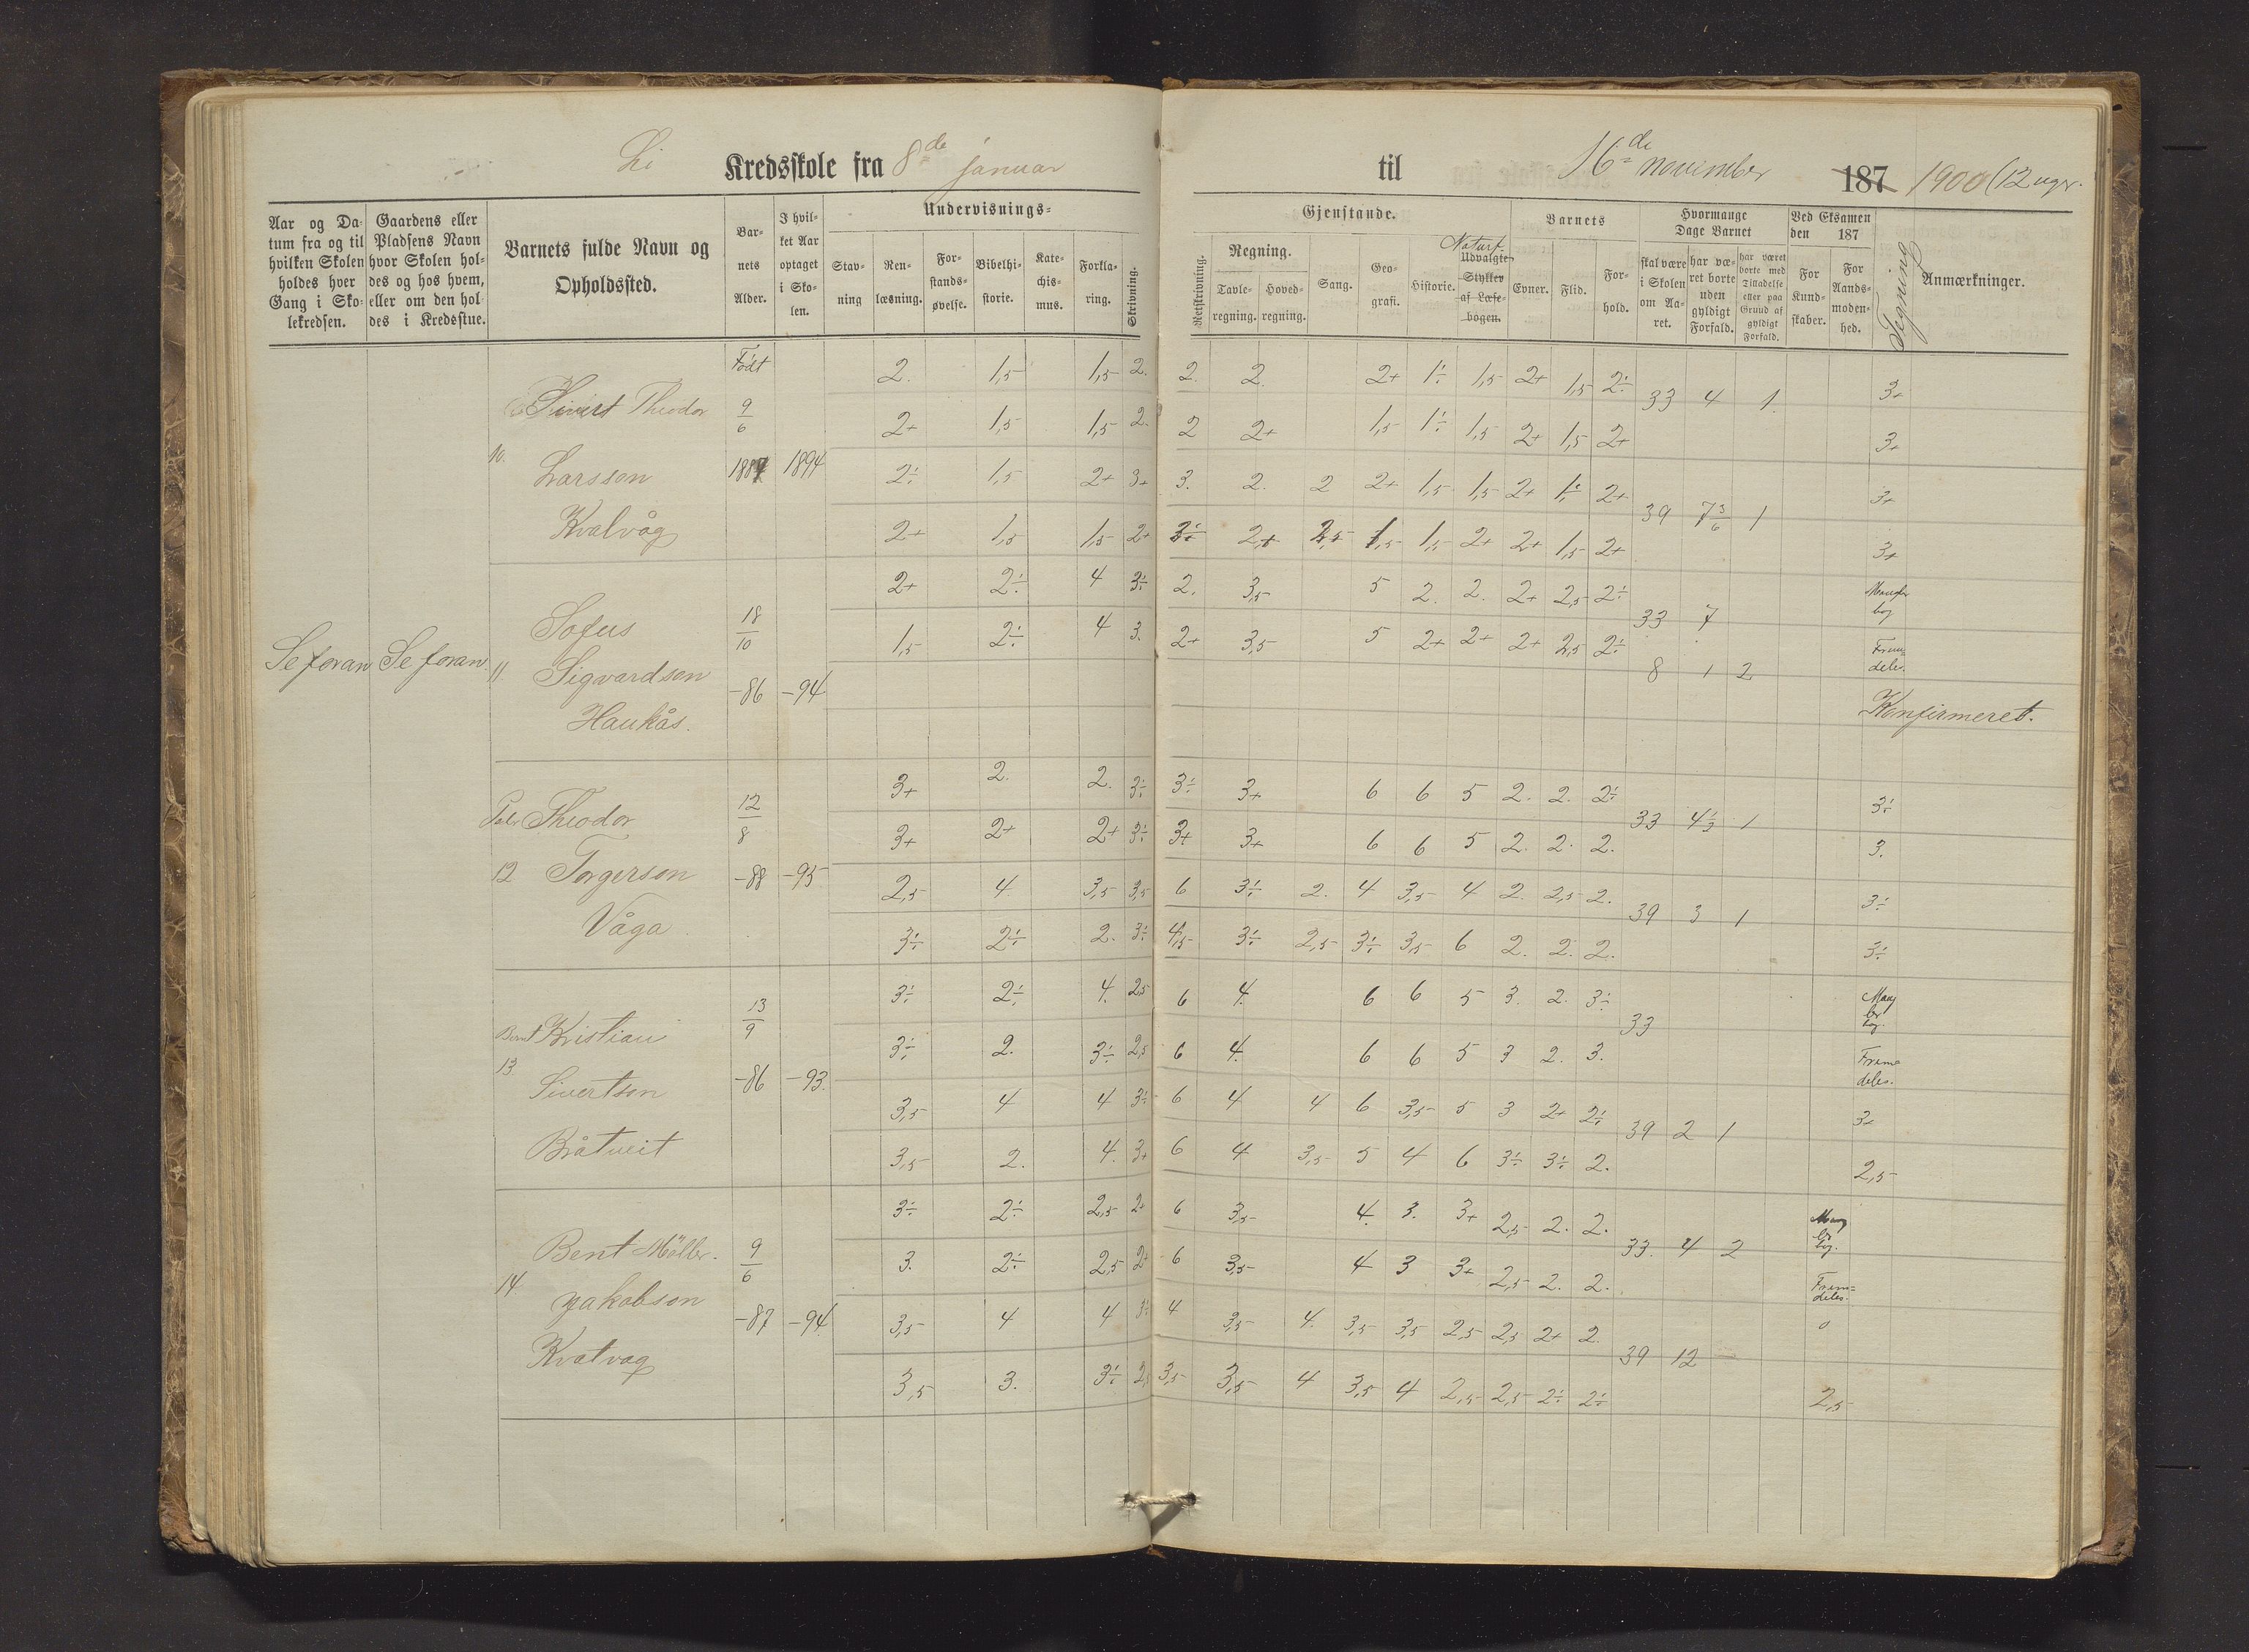 Li Kredsskole fra 8de januar til 16de november 187 1900 (12 uger.
Aar og Da-
tum fra og til
hvilken Skolen
holdes hver
Gang i Sko-
lekredsen.
Gaardens eller
Pladsens Navn
hvor Skolen hol-
des og hos hvem,
eller om den hol-
des i Kredsstue.
Barnets fulde Navn og
Opholdssted.
Bar-
nets
Alder.
I hvil-
ket Aar
optaget
i Sko-
len.
Undervisnings-
Stav-
ning
Ren-
læsning.
For-
stands-
øvelse.
Bibelhi-
storie.
Kate-
chis-
mus.
Forkla-
ring.
Skrivning.
Gjenstande.
Retskrivning.
Regning.
Tavle-
regning.
Hoved-
regning.
Sang.
Geo-
grafi.
Historie.
Naturf.
Udvalgte
Stykker
af Læse-
bogen.
Barnets
Evner.
Flid.
For-
hold.
Hvormange
Dage Barnet
skal være
i Skolen
om Aa-
ret.
har væ-
ret borte
uden
gyldigt
Forfald.
har været
borte med
Tilladelse
eller paa
Grund af
gyldigt
Forfald.
Ved Eksamen
den 187
For
Kund-
skaber.
For
Aands-
moden-
hed.
Tegning
Anmærkninger.
Født
2. 1,5 1,5 2. 2. 2. 2+ 1÷ 1,5 2+ 1,5 2÷ 33 4 1. 3+
Sivert Theodor 9/6
2+ 1,5 1,5 2. 2 2+ 1,5 1÷ 1,5 2+ 1,5 2+ 3+
10. Larssen 1887 1894 2÷ 1,5 2+ 3+ 3. 2. 2 2+ 1,5 1,5 2+ 1÷ 2+ 39 7 3/6 1 3+
Kvalvåg 2+ 1,5 1,5 2+ 3÷ 2+ 2,5 1,5 1,5 2+ 2+ 1,5 2+ 3+
2+ 2÷ 4 3÷ 2. 3,5 5 2. 2. 2+ 2,5 2÷ 33 7
bog
Sofus 18/10
1,5 2÷ 4 3. 2+ 3,5 5 2+ 2+ 2+ 2,5 2÷ Frem=
deles.
Se foran Se foran. 11. Sigvardsen -86 -94 8 1 2
Haukås. Konfirmeret.
3+ 2. 2. 3÷ 3÷ 3+ 6 6 5 2. 2. 2÷ 33 4 1/3 1 3÷
Theodor 12/8
3+ 2+ 2+ 3÷ 3+ 3+ 6 6 5 2. 2. 2. 3.
12 Torgersen -88 -95 2,5 4 3,5 3,5 6 3÷ 2. 4 3,5 4 2. 2,5 2. 39 3 1 3÷
Våga. 3÷ 2÷ 2. 3÷ 4,5 3÷ 2,5 3÷ 3,5 6 2. 2. 2. 3÷
3÷ 2÷ 4. 2,5 6 4. 6 6 5 3. 2. 3÷ 33
Mang
ler
bog.
Bernt Kristian 13/9
3÷ 2. 3÷ 2,5 6 4. 6 6 5 3 2. 3. Frem=
deles.
13. Sivertsen -86 -93. 3,5 4 4 3÷ 6 4 4 6 3,5 5 3 2+ 2÷ 39 2 1 3+
Bråtveit 3,5 2. 4. 3+ 6 4 3,5 5 4 6 3÷ 3÷ 2. 2,5
3÷ 2÷ 2,5 2+ 6 3,5 4. 3. 3+ 2,5 2. 2. 33. 4 2
Mang
ler
bog.
Bent Möller. 9/6
3. 2÷ 2,5 2+ 6 3,5 4 3 3+ 2,5 2. 2. Frem=
deles.
14 Jakobson -87 -94. 3,5 4 4 3÷ 4 3,5 4. 3,5 3,5 2,5 2,5 2+ 2. 39 12 — 0
Kvalvag 3,5 3. 3÷ 3,5 3,5 4 3,5 4 2,5 2,5 2÷ 2÷ 2,5